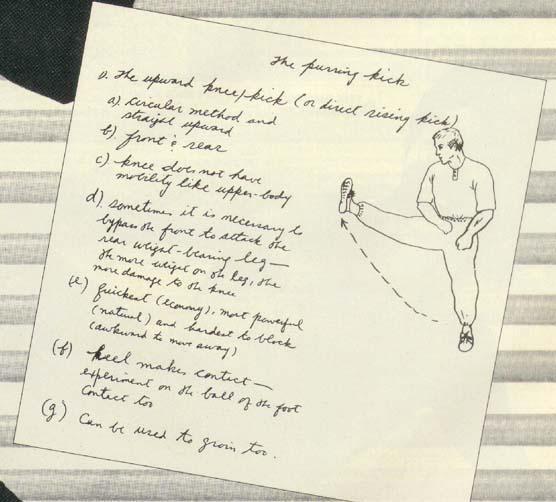 The purring kick
1. The upward knee/kick (or direct rising kick)
a). circular method and
straight upward
b) front & rear
c) knee does not have
mobility like upper-body
d). sometimes it is necessary to
bypass the front to attack the
rear weight-bearing leg—
the more weight on the leg, the
more damage to the knee
(e) quickest (economy), most powerful
(natural) and hardest to block
(awkward to move away)
(f) heel makes contact—
experiment on the ball of the foot
contact too
(g) Can be used to groin too.